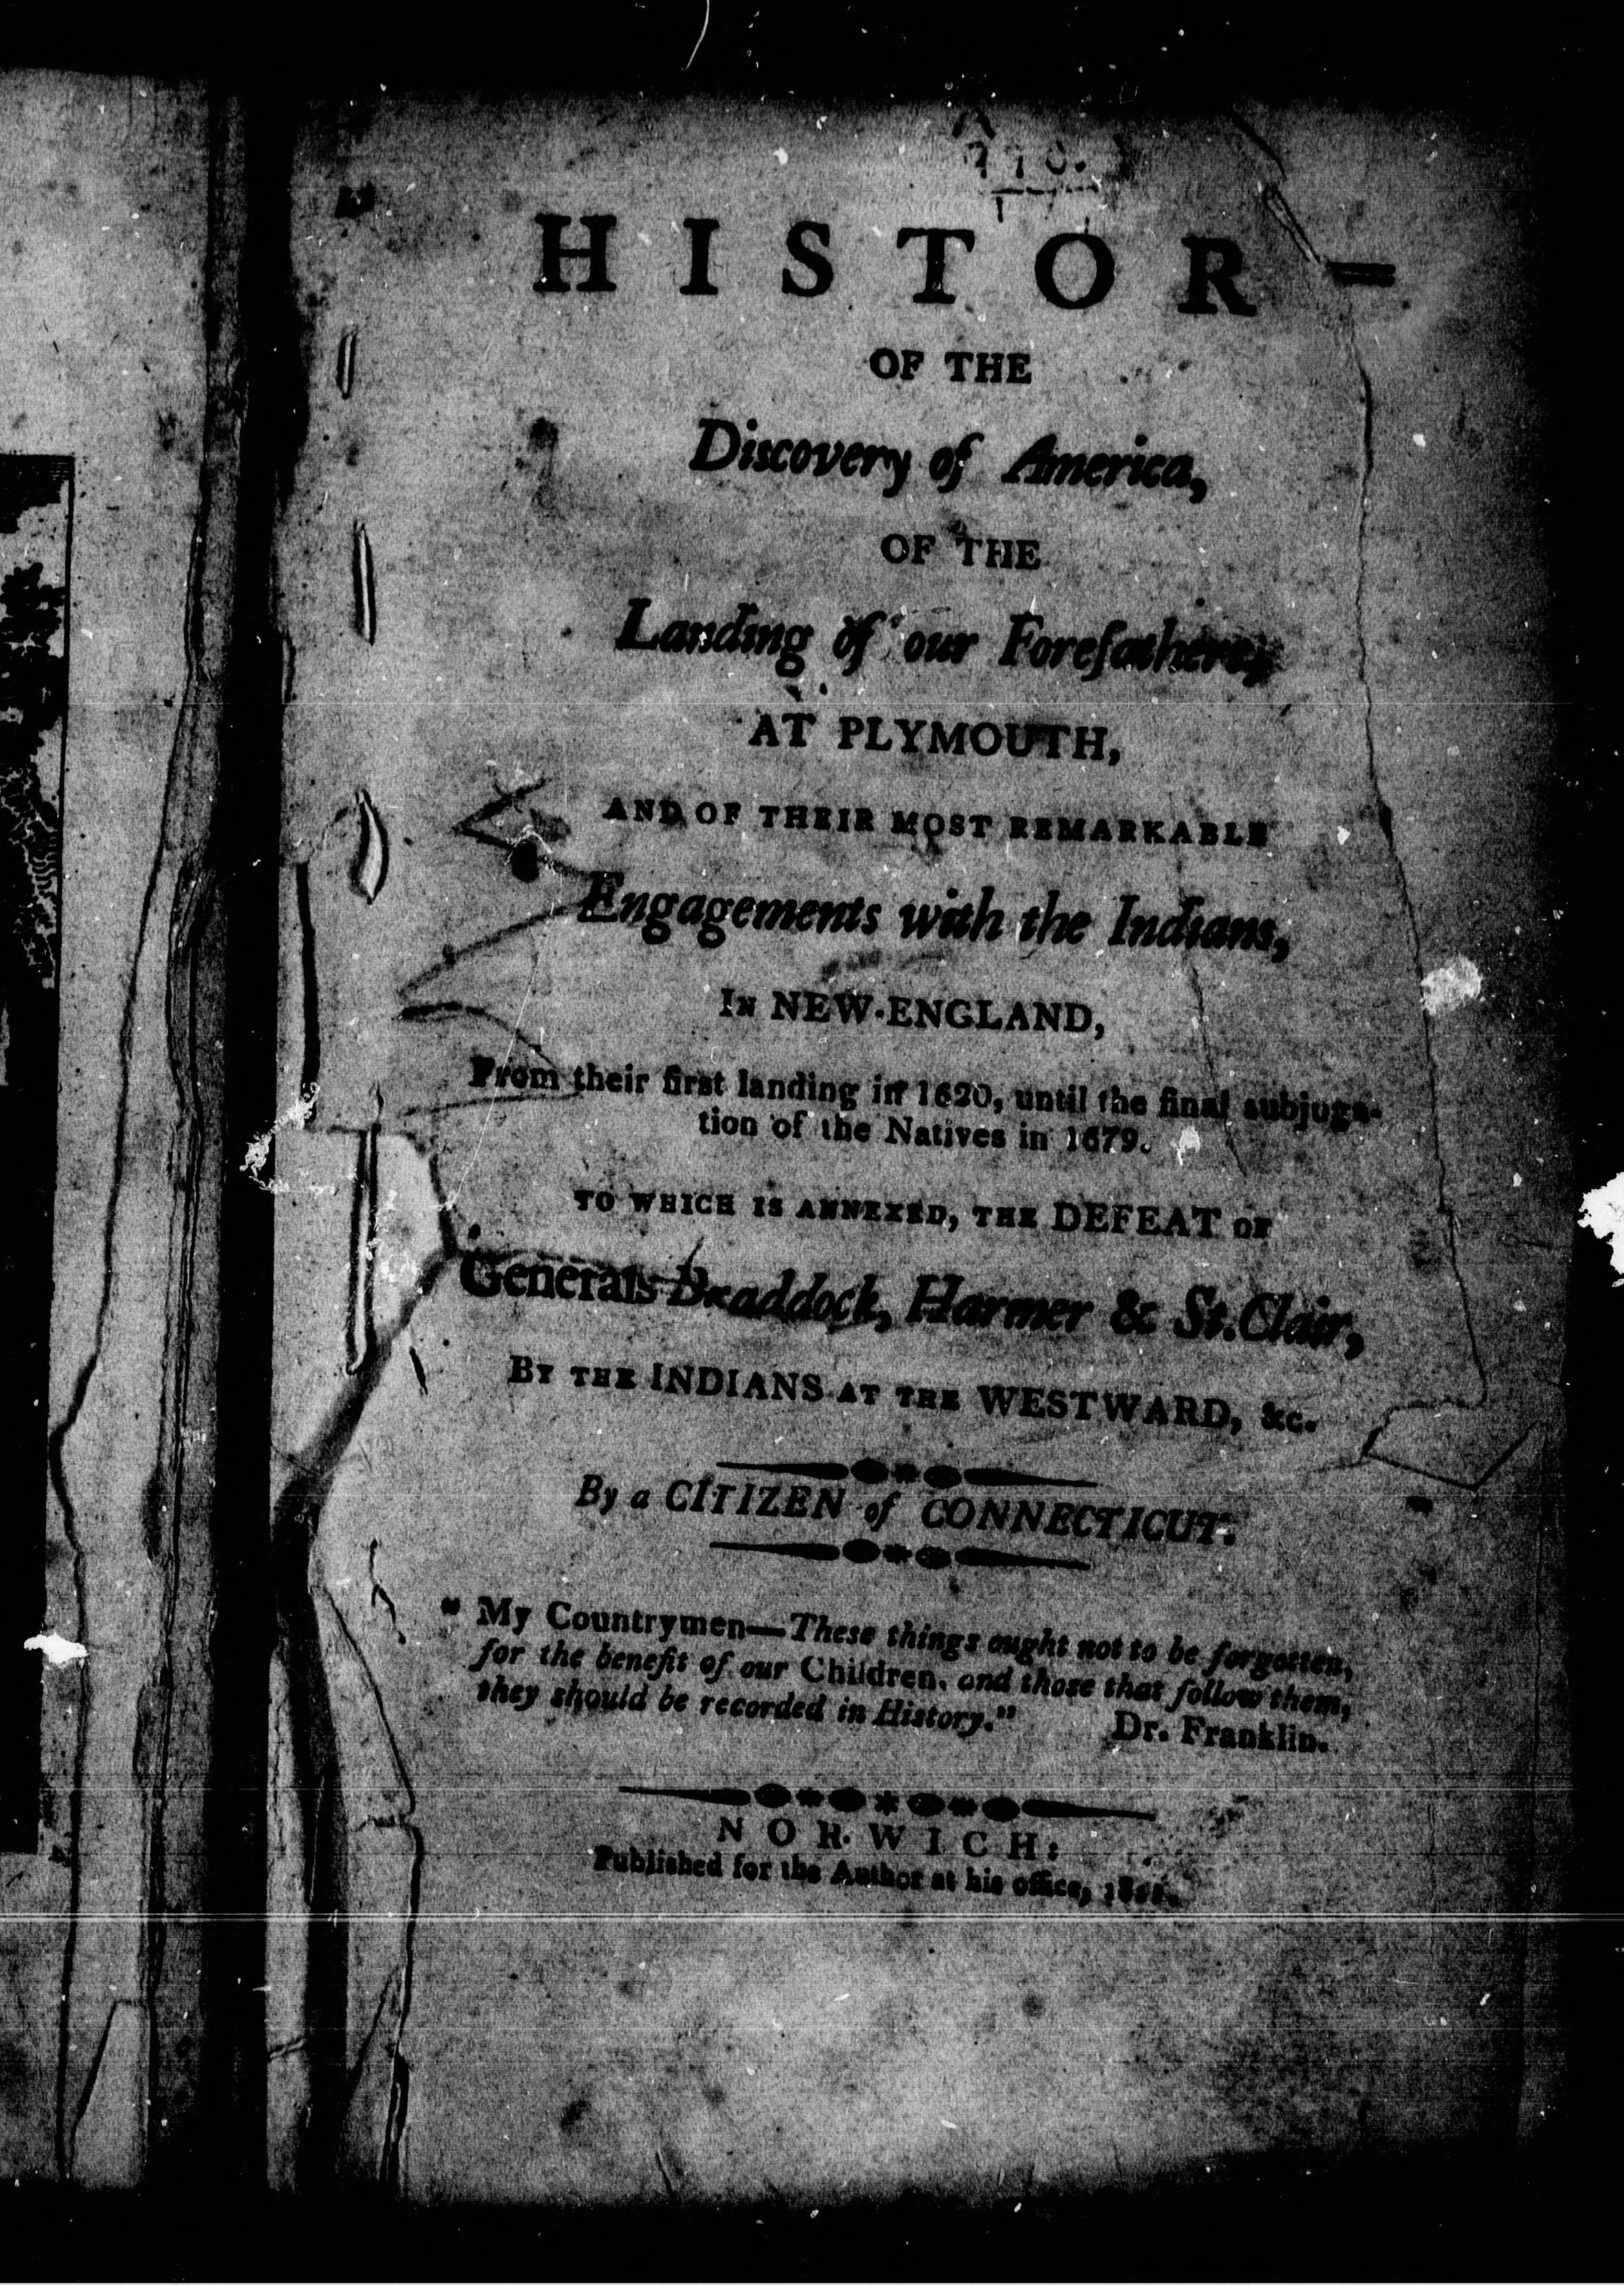 HISTOR
OF THE
Discovery of America,
OF THE
Landing of our Forefathers,
AT PLYMOUTH,
AND OF THEIR MOST REMARKABLE
Engagements with the Indians,
IN NEW-ENGLAND,
From their first landing in 1620, until the final subjuga-
tion of the Natives in 1679.
TO WHICH IS ANNEXED, THE DEFEAT OF
Generals Braddock, Harmer & St. Clair,
BY THE INDIANS AT THE WESTWARD, &c.
By a CITIZEN of CONNECTICUT.
"My Countrymen—These things ought not to be forgotten,
for the benefit of our Children, and those that follow them,
they should be recorded in History."
Dr. Franklin.
NORWICH:
Published for the Author at his office,